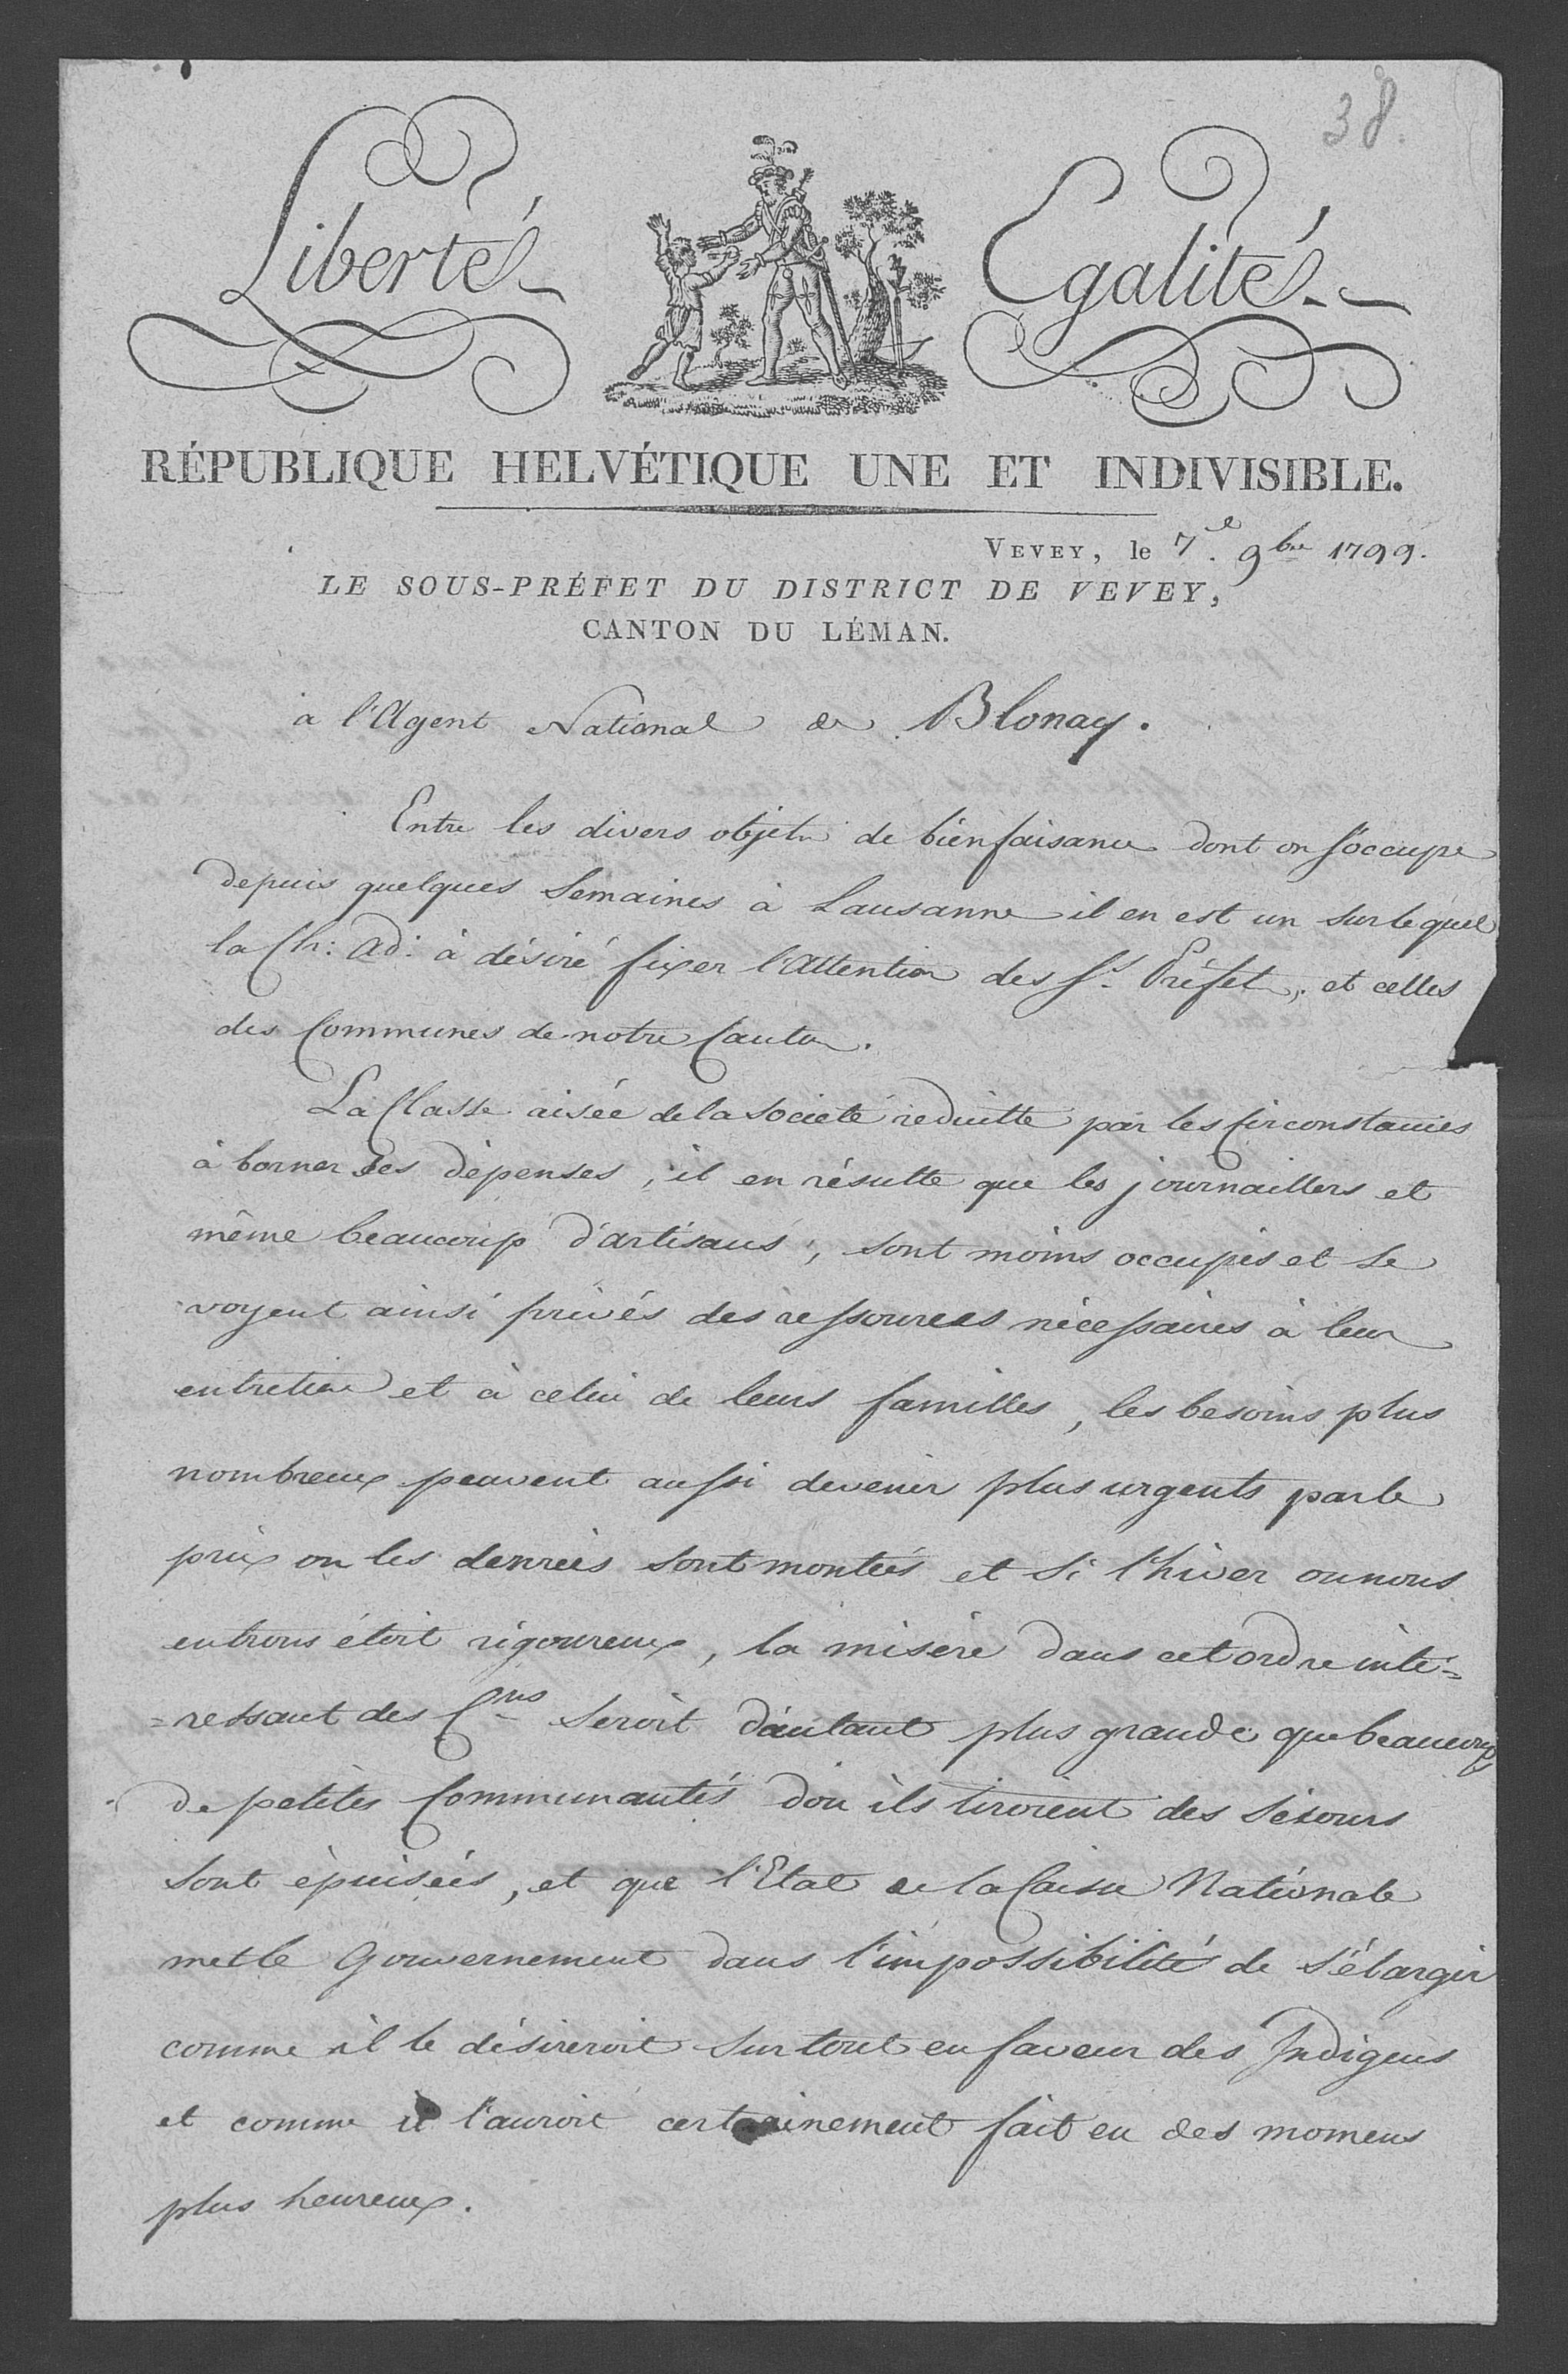 38.
Liberté Egalité
RÉPUBLIQUE HELVÉTIQUE UNE ET INDIVISIBLE.
VEVEY, le 7e. 9bre 1799.
LE SOUS-PRÉFET DU DISTRICT DE VEVEY,
CANTON DU LÉMAN.
à l'Agent National de Blonay.
Entre les divers objets de bienfaisance dont on s'occupe
depuis quelques Semaines à Lausanne il en est un sur lequel
la Ch: Ad: à désiré fixer l'Attention des Ss. Préfets, et celles
des Communes de notre Canton.
La Classe aisée de la Societé reduitte par les Circonstances
à borner ses dépenses, il en résulte que les journaillers et
même beaucoup d'artisans, sont moins occupés et se
voyent ainsi privés des ressources nécessaires à leur
entretien et à celui de leurs familles, les besoins plus
nombreux peuvent aussi devenir plus urgents par le
prix ou les denrées sont montées et si l'hiver ou nous
entrons étoit rigoureux, la misère dans cet ordre inté=
=ressant des Cns seroit d'autant plus grande que beaucoup
de petites Communautés dou ils tiroient des sécours
sont épuisées, et que l'Etat de la Caisse Nationale
met le Gouvernement dans l'impossibilité de s'élargir
comme il le désireroit surtout en faveur des Indigens
et comme il l'auroit certainement fait en des momens
plus heureux.